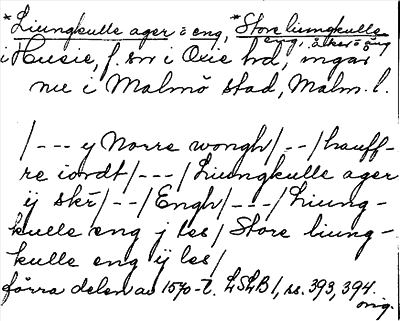 *Liungkulle ager ō eng, *Store liungkulle
eng, åker ō äng
i Husie, f. sn i Oxie hd, ingår
nu i Malmö stad, Malm. l.
/--- y Norre wongh/--/hauff-
re iordt/---/Liungkulle ager
ÿ skr̄/--/Engh/---/Liung-
kulle eng j les/Store liung-
kulle eng ÿ les/
förra delen av 1570-t. LSLB 1, ss. 393, 394.
orig.